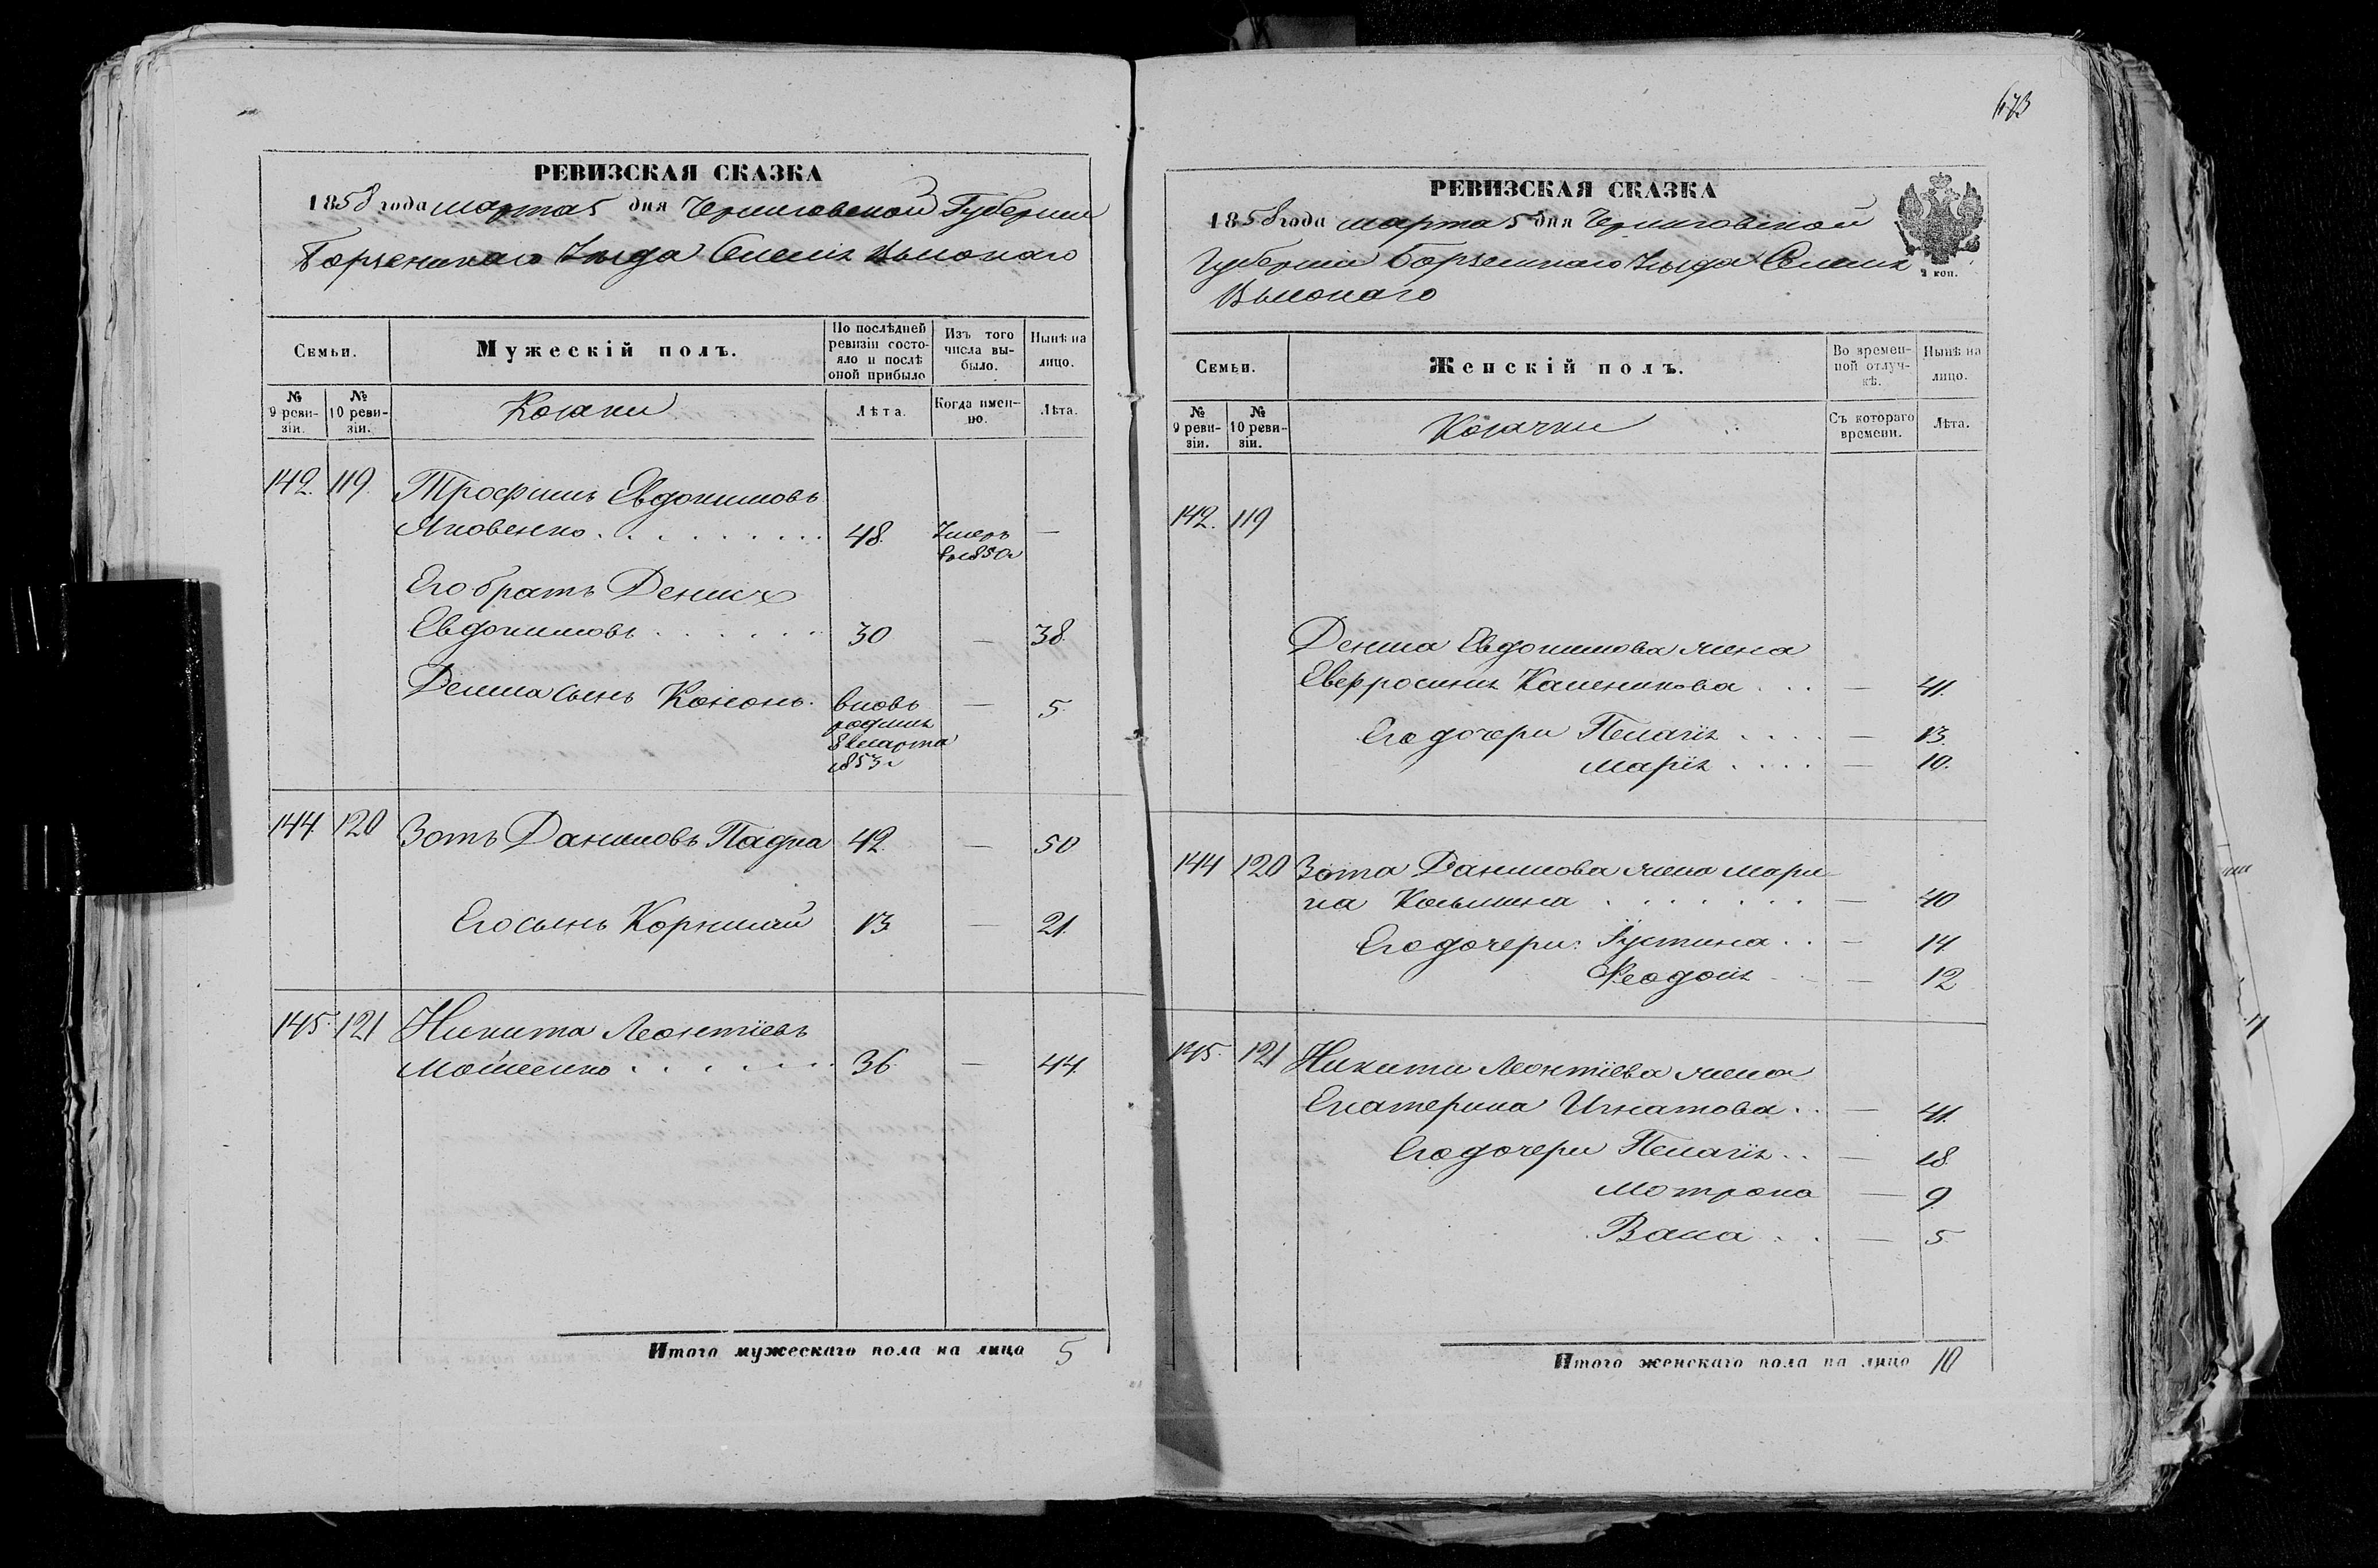 РЕВИЗСКАЯ СКАЗКА
1858 года марта 5 дня Черниговской Губернии
Борзенскаго Уезда Селенія Высокаго
Семьи.
Мужескій полъ.
По послѣдней ревизіи состояло и послѣ оной прибыло
Изъ того числа выбыло.
Нынѣ на лицо.
№ 9 ревизіи.
№ 10 ревизіи.
Козаки
Лѣта.
Когда именно.
Лѣта.
142. 119. Трофимъ Евдокимовъ
Яковенко . . . . . . . . 48. Умеръ въ 1850 г —
Его братъ Денисъ
Евдокимовъ . . . . . . 30 — 38.
Дениса сынъ Кононъ. вновь — 5.
родился
8 марта
1853 г
144. 120 Зотъ Даниловъ Падка 42. — 50
Его сынъ Корнилій 13 — 21.
145. 121 Никита Леонтіевъ
Мойсеенко . . . . . . 36. — 44.
Итого мужескаго пола на лицо 5
673
РЕВИЗСКАЯ СКАЗКА
1858 года марта 5 дня Черниговской
Губерніи Борзенскаго Уезда Селенія
Высокаго
2 коп.
Семьи.
Женскій полъ.
Во временной отлучкѣ.
Нынѣ на лицо.
№ 9 ревизіи.
№ 10 ревизіи.
Козачки
Съ котораго времени.
Лѣта.
142. 119
Дениса Евдокимова жена
Евфросинія . . . — 41.
Его дочери Пелагія . . . . — 13.
Марія . . . . — 10.
144 120 Зота Данилова жена Мари-
на Косьмина . . . . . . . — 40
Его дочери: Іустина . . — 14
Феодосія — 12
145. 121 Никити Леонтіева жена
Екатерина Игнатова . . — 41.
Его дочери Пелагія . . — 18.
Мотрона — 9
Васса . . — 5.
Итого женскаго пола на лицо 10